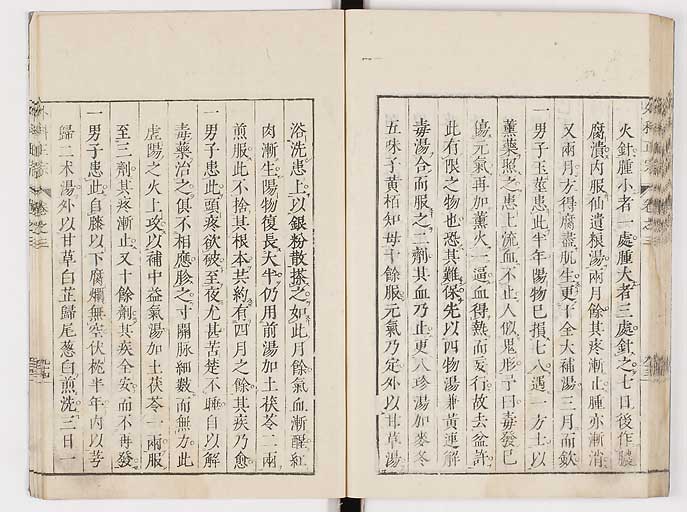 火針腫小者一處腫大者三處針之七日後作膿
腐潰內服仙遺粮湯兩月餘其疼漸止腫亦漸消
又兩月方得腐盡肌生更十全大補湯三月而斂
一男子玉莖患此半年陽物已損七八遇一方士以
薰藥照之患上流血不止人似鬼形予曰毒發已
傷元氣再加薰火一逼血得熱而妄行故去益許
此有限之物也恐其難保先以四物湯兼黃連解
毒湯合而服之二劑其血乃止更八珍湯加麥冬
五味子黃栢知母十餘服元氣乃定外以甘草湯
浴洗患上以銀粉散搽之如此月餘氣血漸醒紅
肉漸生陽物復長大半仍用前湯加土茯苓二兩
煎服此不捨其根本共約有四月之餘其疾乃愈
一男子患此頭疼欲破至夜尤甚苦楚不睡自以解
毒藥治之俱不相應胗之寸關脉細數而無力此
虛陽之火上攻以補中益氣湯加土茯苓一兩服
至三劑其疼漸止又十餘劑其疾全安而不再發
一男子患此自膝以下腐爛無空伏枕半年內以芎
歸二朮湯外以甘草白芷歸尾葱白煎洗三日一